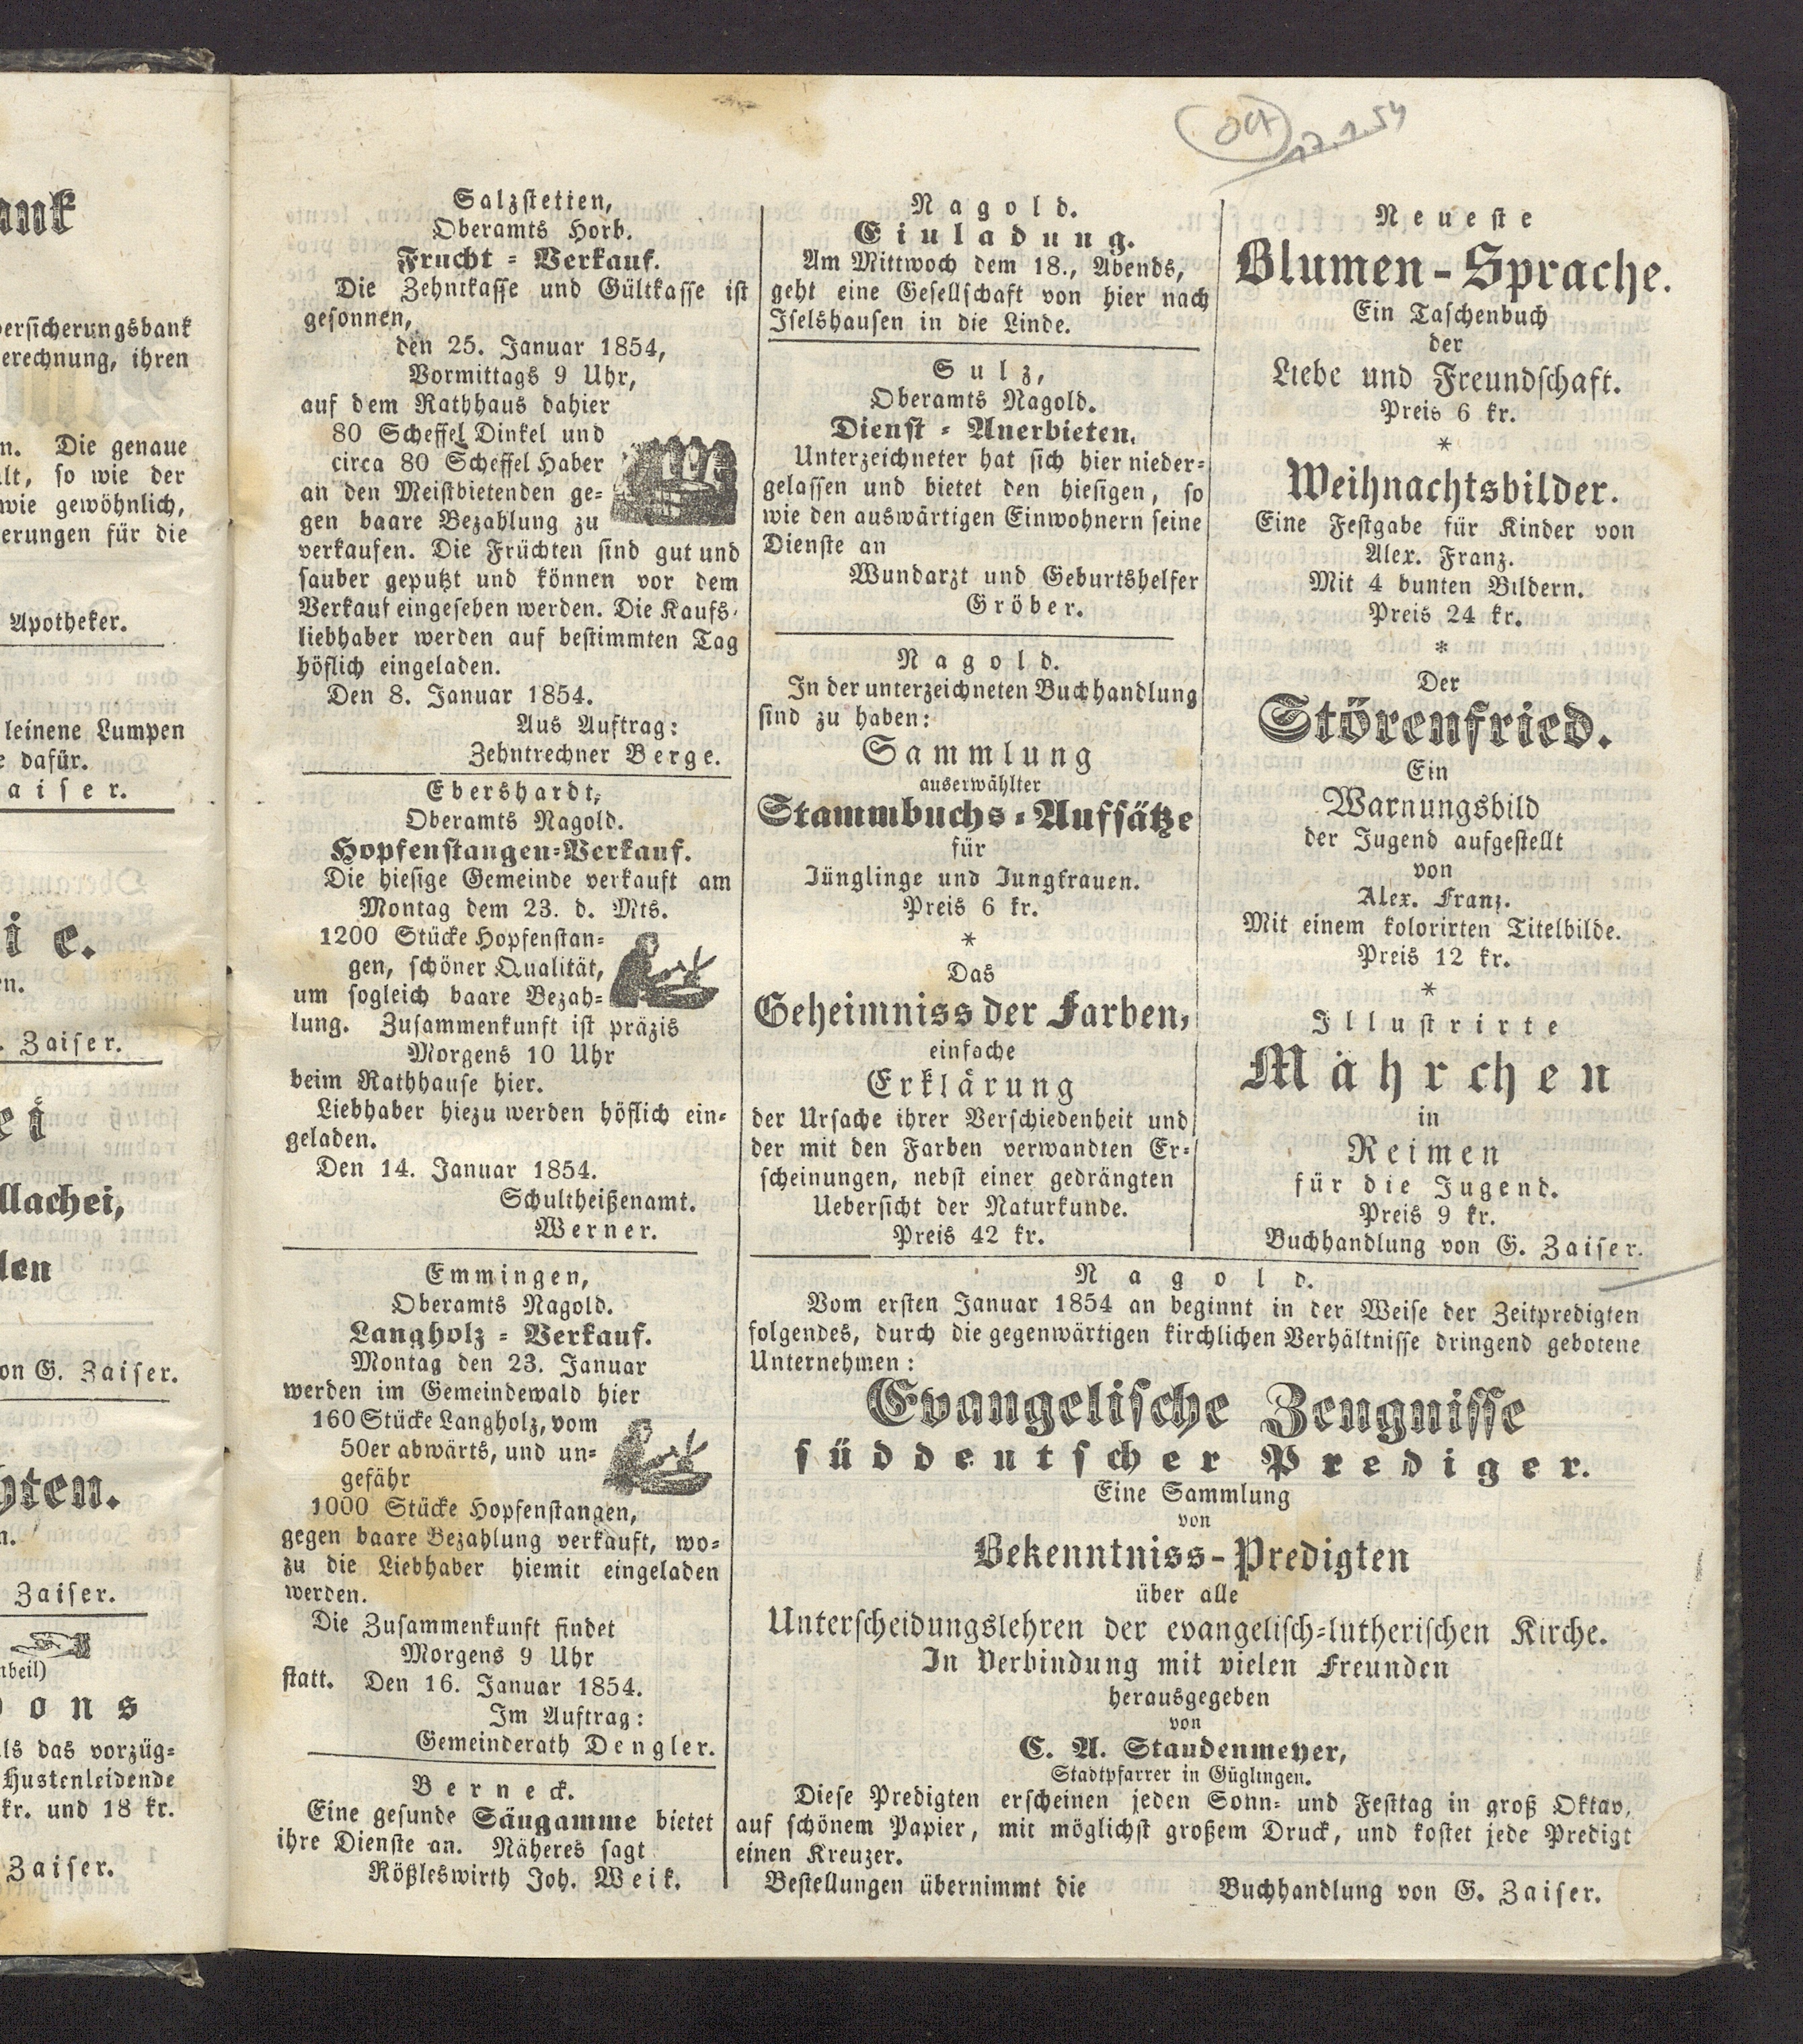 ank
versicherungsbank
erechnung, ihren
n. Die genaue
lt, so wie der
wie gewöhnlich,
erungen für die
Apotheker.
leinene Lumpen
e dafür.
aiser.
ie.
en.
. Zaiser.
ei
llachei,
len
on G. Zaiser.
hten.
n.
Zaiser.
nbeil)
ons
ls das vorzüg=
Hustenleidende
kr. und 18 kr.
Zaiser.
17.1.54
Salzstetten,
Oberamts Horb.
Frucht = Verkauf.
Die Zehntkasse und Gültkasse ist
gesonnen,
den 25. Januar 1854,
Vormittags 9 Uhr,
auf dem Rathhaus dahier
80 Scheffel Dinkel und
circa 80 Scheffel Haber
an den Meistbietenden ge=
gen baare Bezahlung zu
verkaufen. Die Früchten sind gut und
sauber geputzt und können vor dem
Verkauf eingesehen werden. Die Kaufs=
liebhaber werden auf bestimmten Tag
höflich eingeladen.
Den 8. Januar 1854.
Aus Auftrag:
Zehntrechner Berge.
Ebershardt,
Oberamts Nagold.
Hopfenstangen=Verkauf.
Die hiesige Gemeinde verkauft am
Montag dem 23. d. Mts.
1200 Stücke Hopfenstan=
gen, schöner Qualität,
um sogleich baare Bezah=
lung. Zusammenkunft ist präzis
Morgens 10 Uhr
beim Rathhause hier.
Liebhaber hiezu werden höflich ein=
geladen.
Den 14. Januar 1854.
Schultheißenamt.
Werner.
Emmingen,
Oberamts Nagold.
Langholz = Verkauf.
Montag den 23. Januar
werden im Gemeindewald hier
160 Stücke Langholz, vom
50er abwärts, und un=
gefähr
1000 Stücke Hopfenstangen,
gegen baare Bezahlung verkauft, wo=
zu die Liebhaber hiemit eingeladen
werden.
Die Zusammenkunft findet
Morgens 9 Uhr
statt. Den 16. Januar 1854.
Im Auftrag:
Gemeinderath Dengler.
Berneck.
Eine gesunde Säugamme bietet
ihre Dienste an. Näheres sagt
Rößleswirth Joh. Weik.
Nagold.
Einladung.
Am Mittwoch dem 18., Abends,
geht eine Gesellschaft von hier nach
Iselshausen in die Linde.
Sulz,
Oberamts Nagold.
Dienst = Anerbieten.
Unterzeichneter hat sich hier nieder=
gelassen und bietet den hiesigen, so
wie den auswärtigen Einwohnern seine
Dienste an
Wundarzt und Geburtshelfer
Gröber.
Nagold.
In der unterzeichneten Buchhandlung
sind zu haben:
Sammlung
auserwählter
Stammbuchs = Aufsätze
für
Jünglinge und Jungfrauen.
Preis 6 kr.
*
Das
Geheimniss der Farben,
einfache
Erklärung
der Ursache ihrer Verschiedenheit und
der mit den Farben verwandten Er=
scheinungen, nebst einer gedrängten
Uebersicht der Naturkunde.
Preis 42 kr.
Neueste
Blumen-Sprache.
Ein Taschenbuch
der
Liebe und Freundschaft.
Preis 6 kr.
*
Weihnachtsbilder.
Eine Festgabe für Kinder von
Alex. Franz.
Mit 4 bunten Bildern.
Preis 24 kr.
*
Der
Störenfried.
Ein
Warnungsbild
der Jugend aufgestellt
von
Alex. Franz.
Mit einem kolorirten Titelbilde.
Preis 12 kr.
*
Illustrirte
Mährchen
in
Reimen
für die Jugend.
Preis 9 kr.
Buchhandlung von G. Zaiser.
Nagold.
Vom ersten Januar 1854 an beginnt in der Weise der Zeitpredigten
folgendes, durch die gegenwärtigen kirchlichen Verhältnisse dringend gebotene
Unternehmen:
Evangelische Zeugnisse
süddeutscher Prediger.
Eine Sammlung
von
Bekenntniss-Predigten
über alle
Unterscheidungslehren der evangelisch=lutherischen Kirche.
In Verbindung mit vielen Freunden
herausgegeben
von
C. A. Staudenmeyer,
Stadtpfarrer in Güglingen.
Diese Predigten erscheinen jeden Sonn= und Festtag in groß Oktav,
auf schönem Papier, mit möglichst großem Druck, und kostet jede Predigt
einen Kreuzer.
Bestellungen übernimmt die Buchhandlung von G. Zaiser.